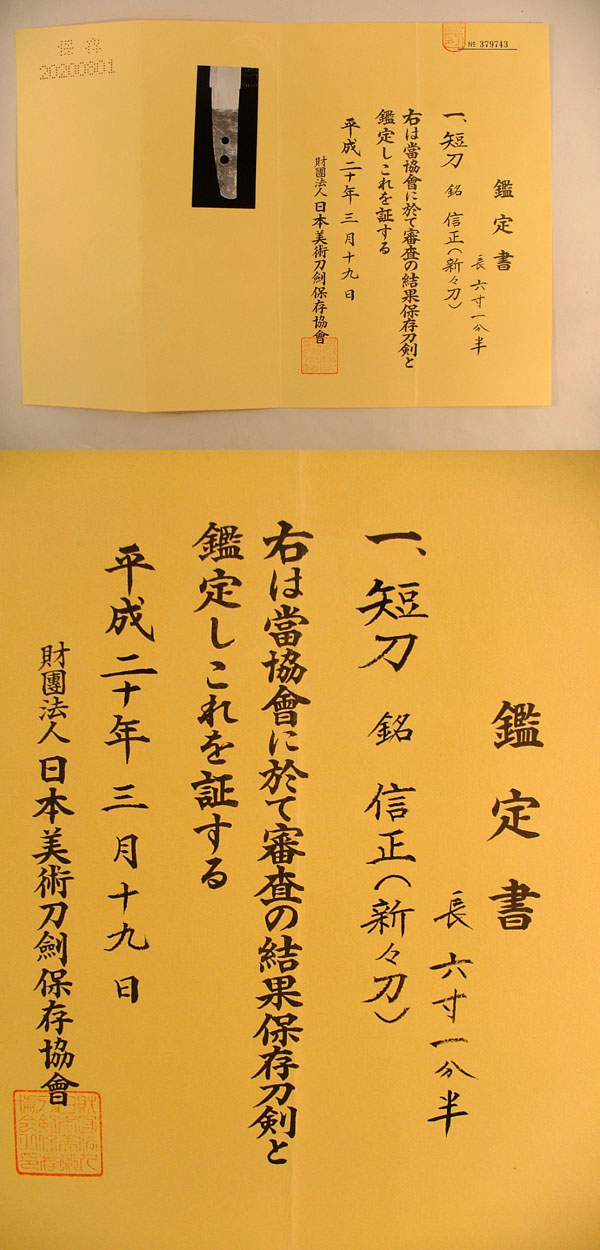 保存
20200801
№ 379743
鑑定書
一、短刀 銘 信正(新々刀)
長 六寸一分半
右は當協會に於て審査の結果保存刀剣と
鑑定しこれを証する
平成二十年三月十九日
財團法人 日本美術刀劍保存協會
鑑定書
一、短刀 銘 信正(新々刀)
長 六寸一分半
右は當協會に於て審査の結果保存刀剣と
鑑定しこれを証する
平成二十年三月十九日
財團法人 日本美術刀劍保存協會